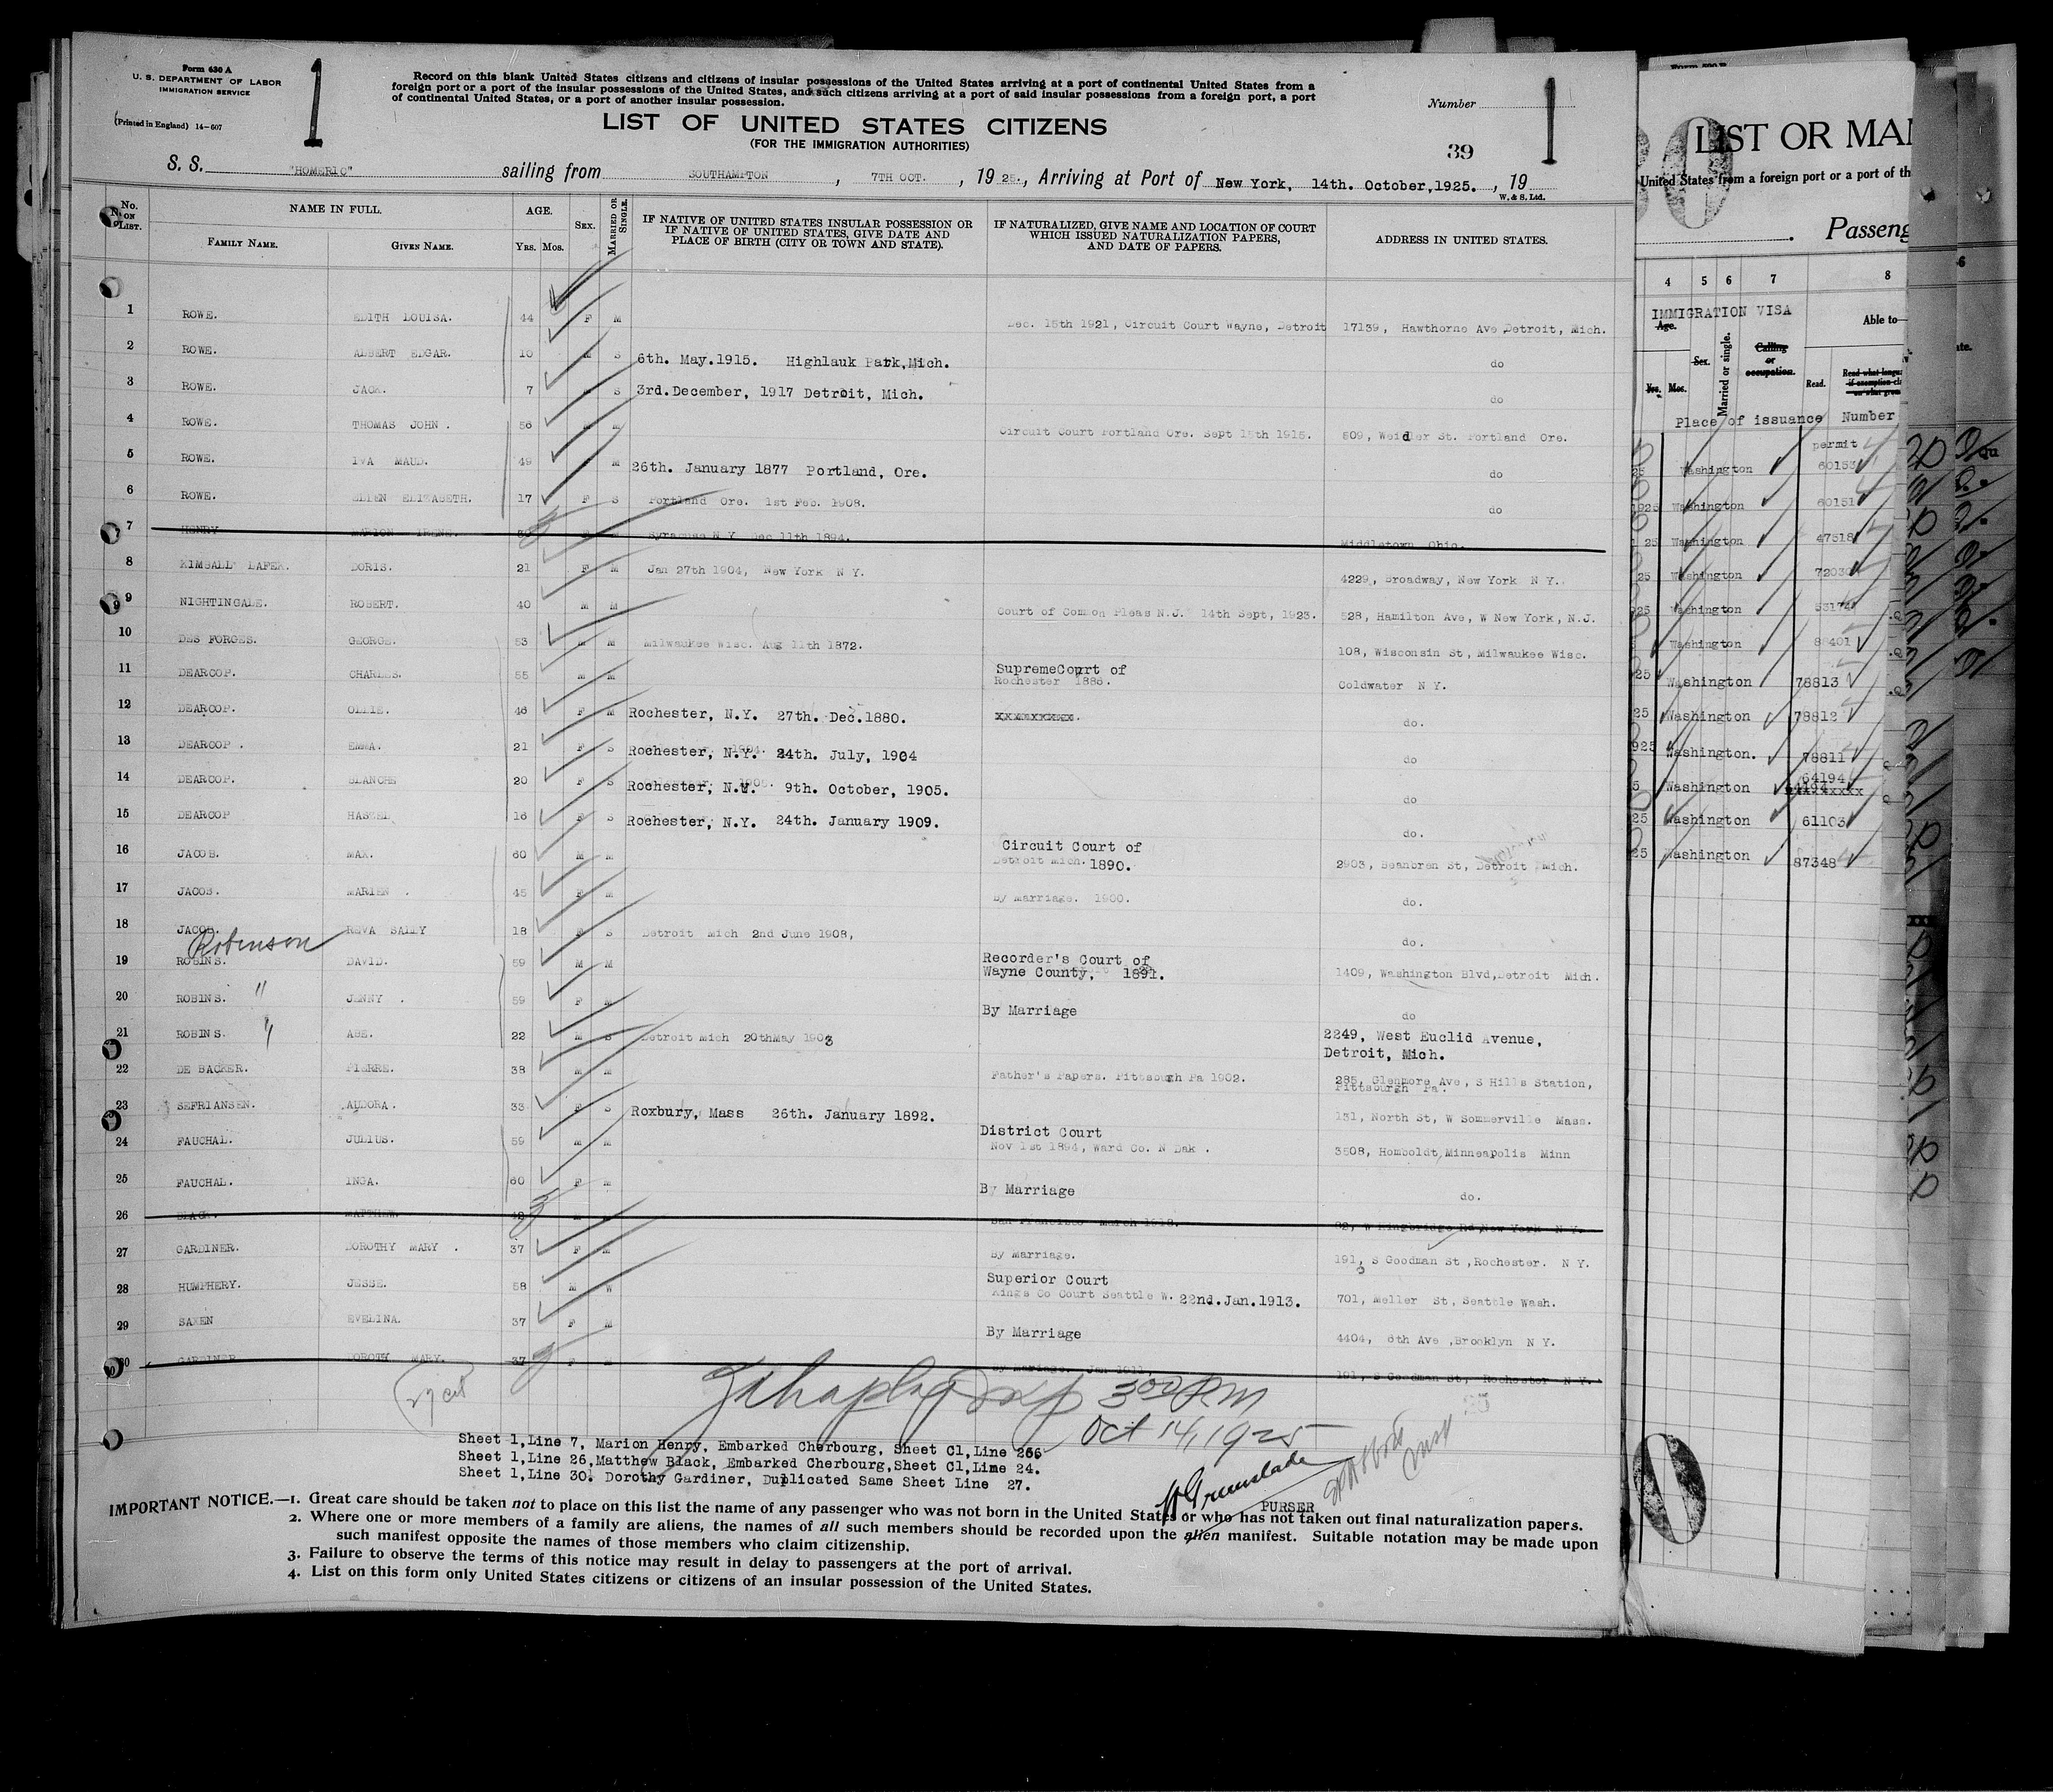 Form 630 A
U. S. DEPARTMENT OF LABOR
IMMIGRATION SERVICE
(Printed in England) 14-607
1
Record on this blank United States citizens and citizens of insular possessions of the United States arriving at a port of continental United States from a
foreign port or a port of the insular possessions of the United States, and such citizens arriving at a port of said insular possessions from a foreign port, a port
of continental United States, or a port of another insular possession.
Number
1
LIST OF UNITED STATES CITIZENS
(FOR THE IMMIGRATION AUTHORITIES)
39
S. S. "HOMERIC" sailing from SOUTHAMPTON, 7TH OCT., 1925., Arriving at Port of New York, 14th. October, 1925., 19
W. & S. Ltd.
No. ON LIST. NAME IN FULL. AGE. SEX. MARRIED OR SINGLE. IF NATIVE OF UNITED STATES INSULAR POSSESSION OR IF NATIVE OF UNITED STATES, GIVE DATE AND PLACE OF BIRTH (CITY OR TOWN AND STATE). IF NATURALIZED, GIVE NAME AND LOCATION OF COURT WHICH ISSUED NATURALIZATION PAPERS, AND DATE OF PAPERS. ADDRESS IN UNITED STATES.
FAMILY NAME. GIVEN NAME. YRS. MOS.
1 ROWE. EDITH LOUISA. 44 F M Dec. 15th 1921, Circuit Court Wayne, Detroit 17139, Hawthorne Ave Detroit, Mich.
2 ROWE. ALBERT EDGAR. 10 M S 6th. May.1915. Highlauk Park, Mich. do
3 ROWE. JACK. 7 S 3rd. December, 1917 Detroit, Mich. do
4 ROWE. THOMAS JOHN. 56 M Circuit Court Portland Ore. Sept 15th 1915. 509, Weidler St. Portland Ore.
5 ROWE. IVA MAUD. 49 M 26th. January 1877 Portland, Ore. do
6 ROWE. ELLEN ELIZABETH. 17 F S Portland Ore. 1st Feb. 1908. do
7 HENRY MARION IRENE. 30 Syracuse N Y Dec 11th 1894. Middletown Ohio.
8 KIMBALL LAFEK. DORIS. 21 F M Jan 27th 1904, New York N Y. 4229, Broadway, New York N Y.
9 NIGHTINGALE. ROBERT. 40 M M Court of Common Pleas N.J. 14th Sept, 1923. 528, Hamilton Ave, W New York, N.J.
10 DES FORGES. GEORGE. 53 M M Milwaukee Wisc. Aug 11th 1872. 108, Wisconsin St, Milwaukee Wisc.
11 DEARCOP. CHARLES. 55 M M Supreme Court of
Rochester 1885. Coldwater N Y.
12 DEARCOP. OLLIE. 46 F M Rochester, N.Y. 27th. Dec.1880. do.
13 DEARCOP. EMMA. 21 F S Rochester, N.Y. 24th. July, 1904 do
14 DEARCOP. BLANCHE 20 F S Rochester, N.Y. 9th. October, 1905. do
15 DEARCOP HASZEL 16 F S Rochester, N.Y. 24th. January 1909. do.
16 JACOB. MAX. 60 M M Circuit Court of
Detroit Mich. 1890. 2903, Seanbren St, Detroit Mich.
17 JACOB. MARIEN. 45 F M By Marriage. 1900. do.
18 JACOB. REVA SALLY 18 F S Detroit Mich 2nd June 1908, do.
Robinson
19 ROBINS. DAVID. 59 M M Recorder's Court of
Wayne County, 1891. 1409, Washington Blvd, Detroit Mich.
20 ROBINS. " JENNY. 59 F M By Marriage do
21 ROBINS. " ABE. 22 M S Detroit Mich 20th May 1903 2249, West Euclid Avenue,
Detroit, Mich.
22 DE BACKER. PIERRE. 38 M M Father's Papers. Pittsburgh Pa 1902. 285, Glenmore Ave, S Hills Station,
Pittsburgh Pa.
23 SEFRIANSEN. AUDORA. 33 F S Roxbury, Mass 26th. January 1892. 131, North St, W Sommerville Mass.
24 FAUCHAL. JULIUS. 59 M M District Court
Nov 1st 1894, Ward Co. N Dak. 3508, Homboldt, Minneapolis Minn
25 FAUCHAL. INGA. 60 F M By Marriage do.
26 BLACK. MATTHEW. San Francisco March 1918. 82, W Kingbridge Rd, New York N Y.
27 GARDINER. DOROTHY MARY. 37 F M By Marriage. 191, S Goodman St, Rochester. N Y.
28 HUMPHERY. JESSE. 58 M W Superior Court
Kings Co Court Seattle W. 22nd. Jan.1913. 701, Meller St, Seattle Wash.
29 SAXEN EVELINA. 37 F M By Marriage 4404, 8th Ave, Brooklyn N Y.
30 GARDINER DOROTHY MARY. 37 F M By Mariage. Jan 1911. 191, S Goodman St, Rochester N Y.
27 cit
3 00 PM
Oct 14, 1925
Sheet 1, Line 7, Marion Henry, Embarked Cherbourg, Sheet C1, Line 266
Sheet 1, Line 26, Matthew Black, Embarked Cherbourg, Sheet C1, Line 24.
Sheet 1, Line 30. Dorothy Gardiner, Duplicated Same Sheet Line 27.
PURSER
IMPORTANT NOTICE.—1. Great care should be taken not to place on this list the name of any passenger who was not born in the United States or who has not taken out final naturalization papers.
2. Where one or more members of a family are aliens, the names of all such members should be recorded upon the alien manifest. Suitable notation may be made upon
such manifest opposite the names of those members who claim citizenship.
3. Failure to observe the terms of this notice may result in delay to passengers at the port of arrival.
4. List on this form only United States citizens or citizens of an insular possession of the United States.
LIST OR MAN
United States from a foreign port or a port of th
Passeng
4 5 6 7 8
IMMIGRATION VISA
Age. Sex. Married or single. Calling or occupation. Able to—
Yrs. Mos. Read.
Place of issuance Number
permit
Washington 60153
Washington 60151
Washington 47518
Washington 72030
Washington 53174
Washington 88401
Washington 78813
Washington 78812
Washington. 78811
64194
Washington
Washington 61103
Washington 87348